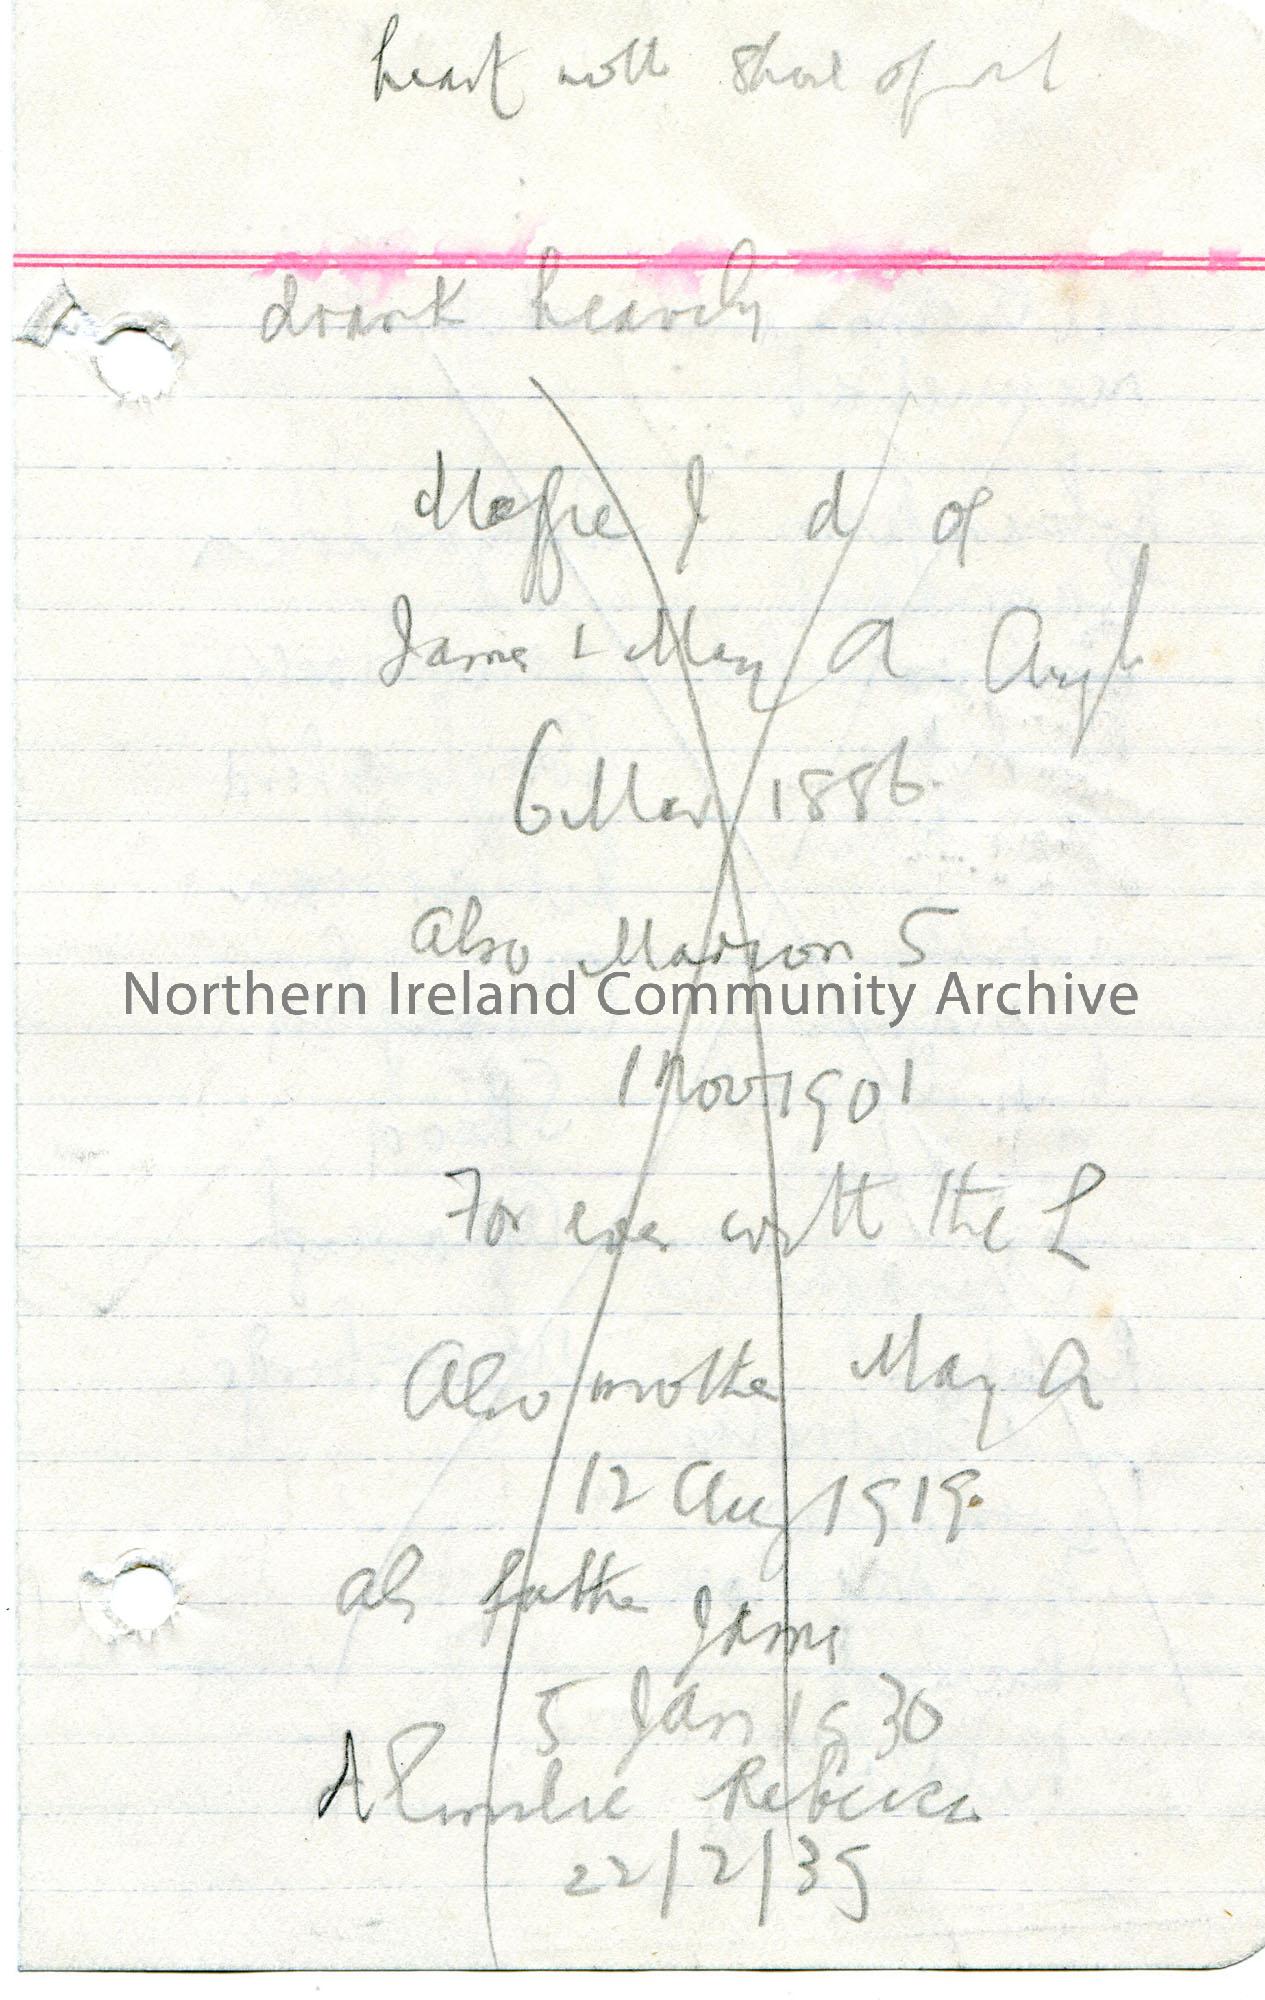 heart with shore of
drank heavily
Maggie J d of
James & Mary A
6 Mar 1886.
Also Marion S
Northern Ireland Community Archive
1 Nov 1901
For ever with the L
Also mother Mary A
12 Aug 1919.
als father James
5 Jan 1930
Rebecca
22/2/39